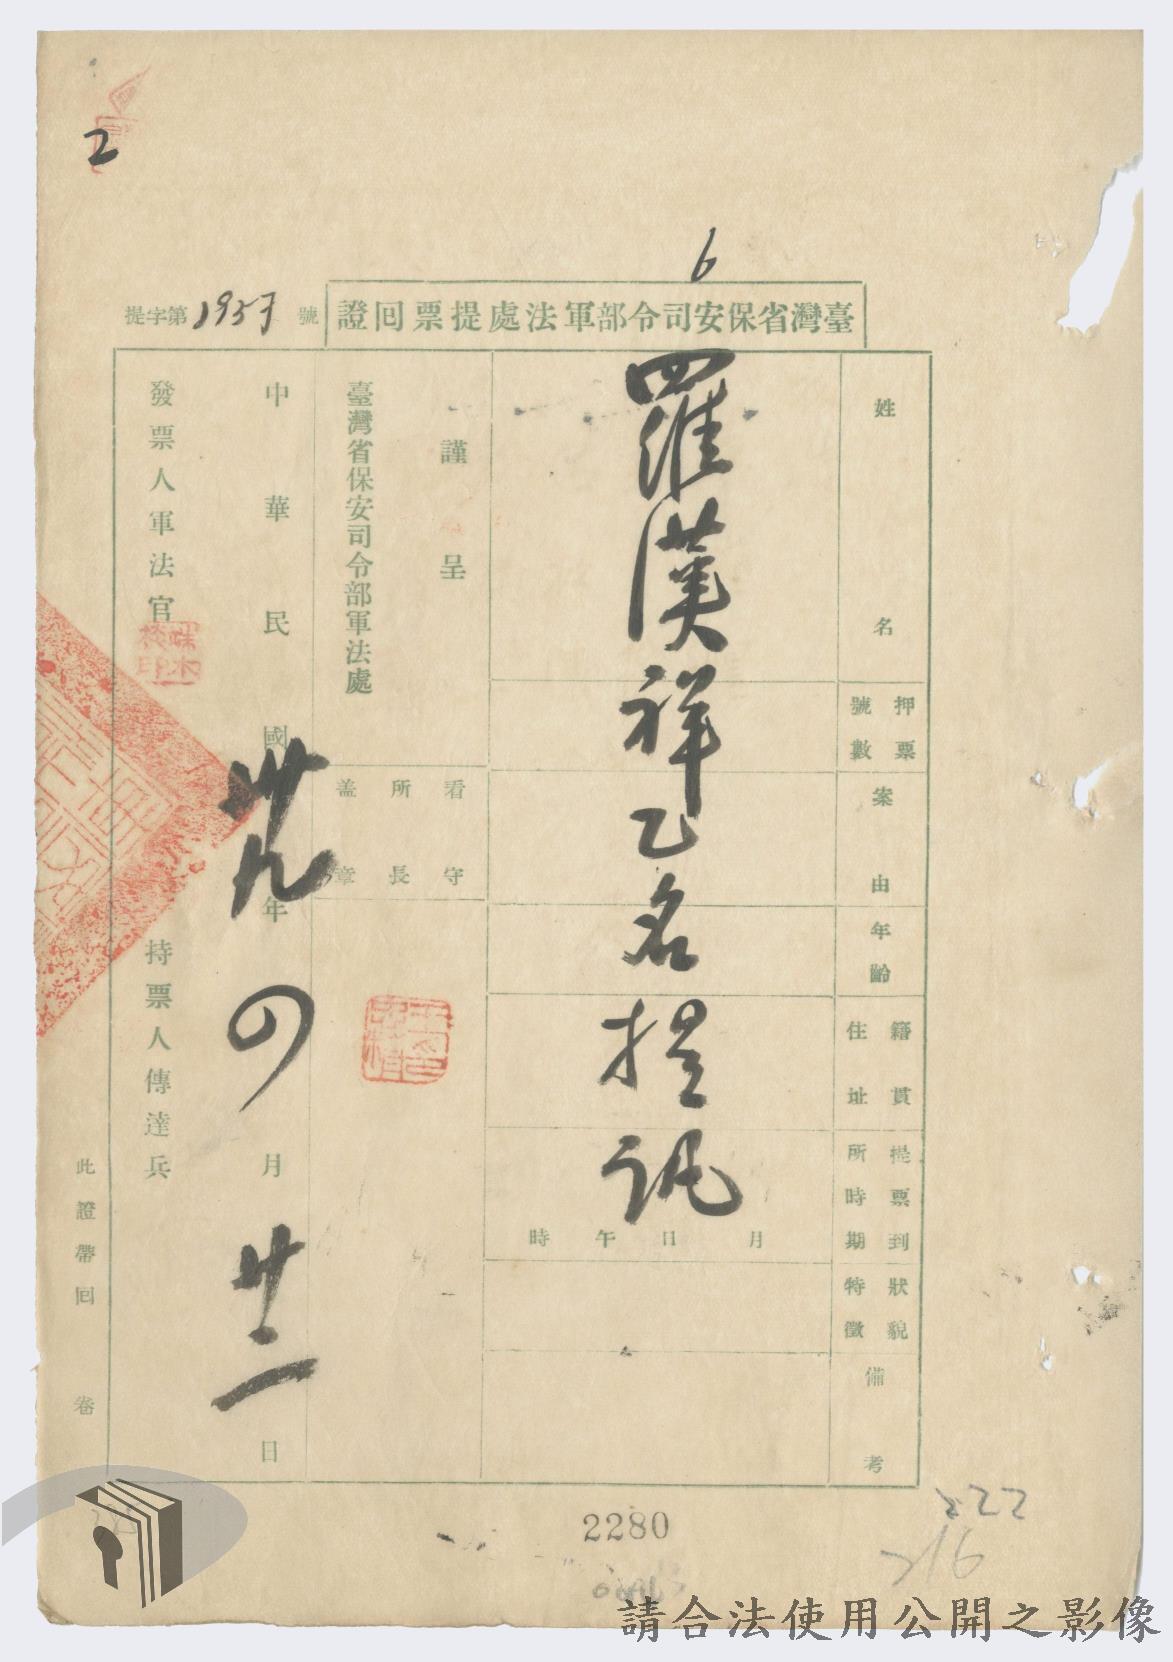 2
6
臺灣省保安司令部軍法處提票回證
提字第1957號
姓名
押票號數
案由
年齡
籍貫住址
提票到所時期
狀貌特徵
備考
羅漢祥乙名提訊
月日午時
謹呈
臺灣省保安司令部軍法處
看守所長蓋章
中華民國卅九年四月廿二日
發票人軍法官
持票人傳達兵
此證帶回卷
2280
222
216
請合法使用公開之影像